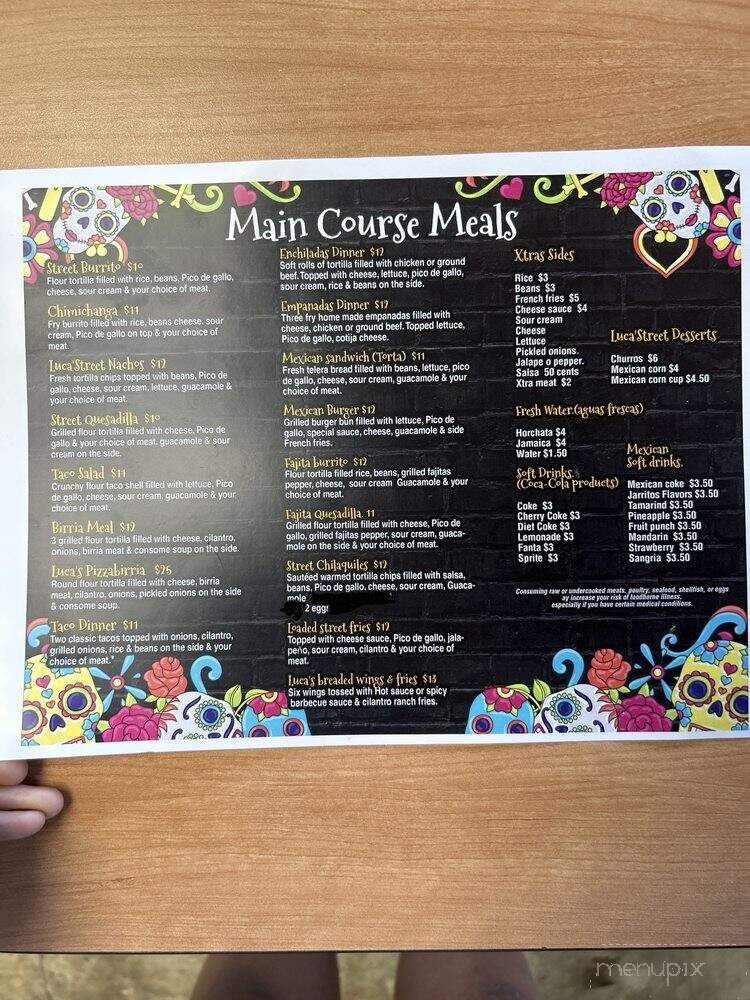 Main Course Meals
Street Burrito $10
Flour tortilla filled with rice, beans, Pico de gallo,
cheese, sour cream & your choice of meat.
Chimichanga $11
Fry burrito filled with rice, beans cheese. sour
cream, Pico de gallo on top & your choice of
meat.
Luca'Street Nachos $12
Fresh tortilla chips topped with beans, Pico de
gallo, cheese, sour cream, lettuce, guacamole &
your choice of meat.
Street Quesadilla $10
Grilled flour tortilla filled with cheese, Pico de
gallo & your choice of meat. guacamole & sour
cream on the side.
Taco Salad $11
Crunchy flour taco shell filled with lettuce, Pico
de gallo, cheese, sour cream, guacamole &
choice of meat.
Birria Meal $12
3 grilled flour tortilla filled with cheese, cilantro,
onions, birria meat & consome soup on the side.
Luca's Pizzabirria $25
Round flour tortilla filled with cheese, birria
meat, cilantro, onions, pickled onions on the side
& consome soup.
Taco Dinner $11
Two classic tacos topped with onions, cilantro,
grilled onions, rice & beans on the side & your
choice of meat.*
Enchiladas Dinner $12
Soft rolls of tortilla filled with chicken or ground
beef. Topped with cheese, lettuce, pico de gallo,
sour cream, rice & beans on the side.
Empanadas Dinner $12
Three fry home made empanadas filled with
cheese, chicken or ground beef. Topped lettuce,
Pico de gallo, cotija cheese.
Mexican sandwich (Torta) $11
Fresh telera bread filled with beans, lettuce, pico
de gallo, cheese, sour cream, guacamole & your
choice of meat.
Mexican Burger $12
Grilled burger bun filled with lettuce, Pico de
gallo, special sauce, cheese, guacamole & side
French fries.
Fajita burrito $12
Flour tortilla filled rice, beans, grilled fajitas
pepper, cheese, sour cream Guacamole & your
choice of meat.
Fajita Quesadilla. 11
Grilled flour tortilla filled with cheese, Pico de
gallo, grilled fajitas pepper, sour cream, guaca-
mole on the side & your choice of meat.
Street Chilaquiles $12
Sautéed warmed tortilla chips filled with salsa,
beans, Pico de gallo, cheese, sour cream, Guaca-
mole
2 eggs
Loaded street fries $12
Topped with cheese sauce, Pico de gallo, jala-
peño, sour cream, cilantro & your choice of
meat.
Luca's breaded wings & fries $13
Six wings tossed with Hot sauce or spicy
barbecue sauce & cilantro ranch fries.
Xtras Sides
Rice $3
Beans $3
French fries $5
Cheese sauce $4
Sour cream
Cheese
Lettuce
Pickled onions.
Jalape o pepper.
Salsa 50 cents
Xtra meat $2
Luca'Street Desserts
Churros $6
Mexican corn $4
Mexican corn cup $4.50
Fresh Water.(aguas frescas)
Horchata $4
Jamaica $4
Water $1.50
Soft Drinks.
(Coca-Cola products)
Coke $3
Cherry Coke $3
Diet Coke $3
Lemonade $3
Fanta $3
Sprite $3
Mexican
Soft drinks.
Mexican coke $3.50
Jarritos Flavors $3.50
Tamarind $3.50
Pineapple $3.50
Fruit punch $3.50
Mandarin $3.50
Strawberry $3.50
Sangria $3.50
Consuming raw or undercooked meats, poultry, seafood, shellfish, or eggs
ay increase your risk of foodborne illness,
especially if you have certain medical conditions.
menupix